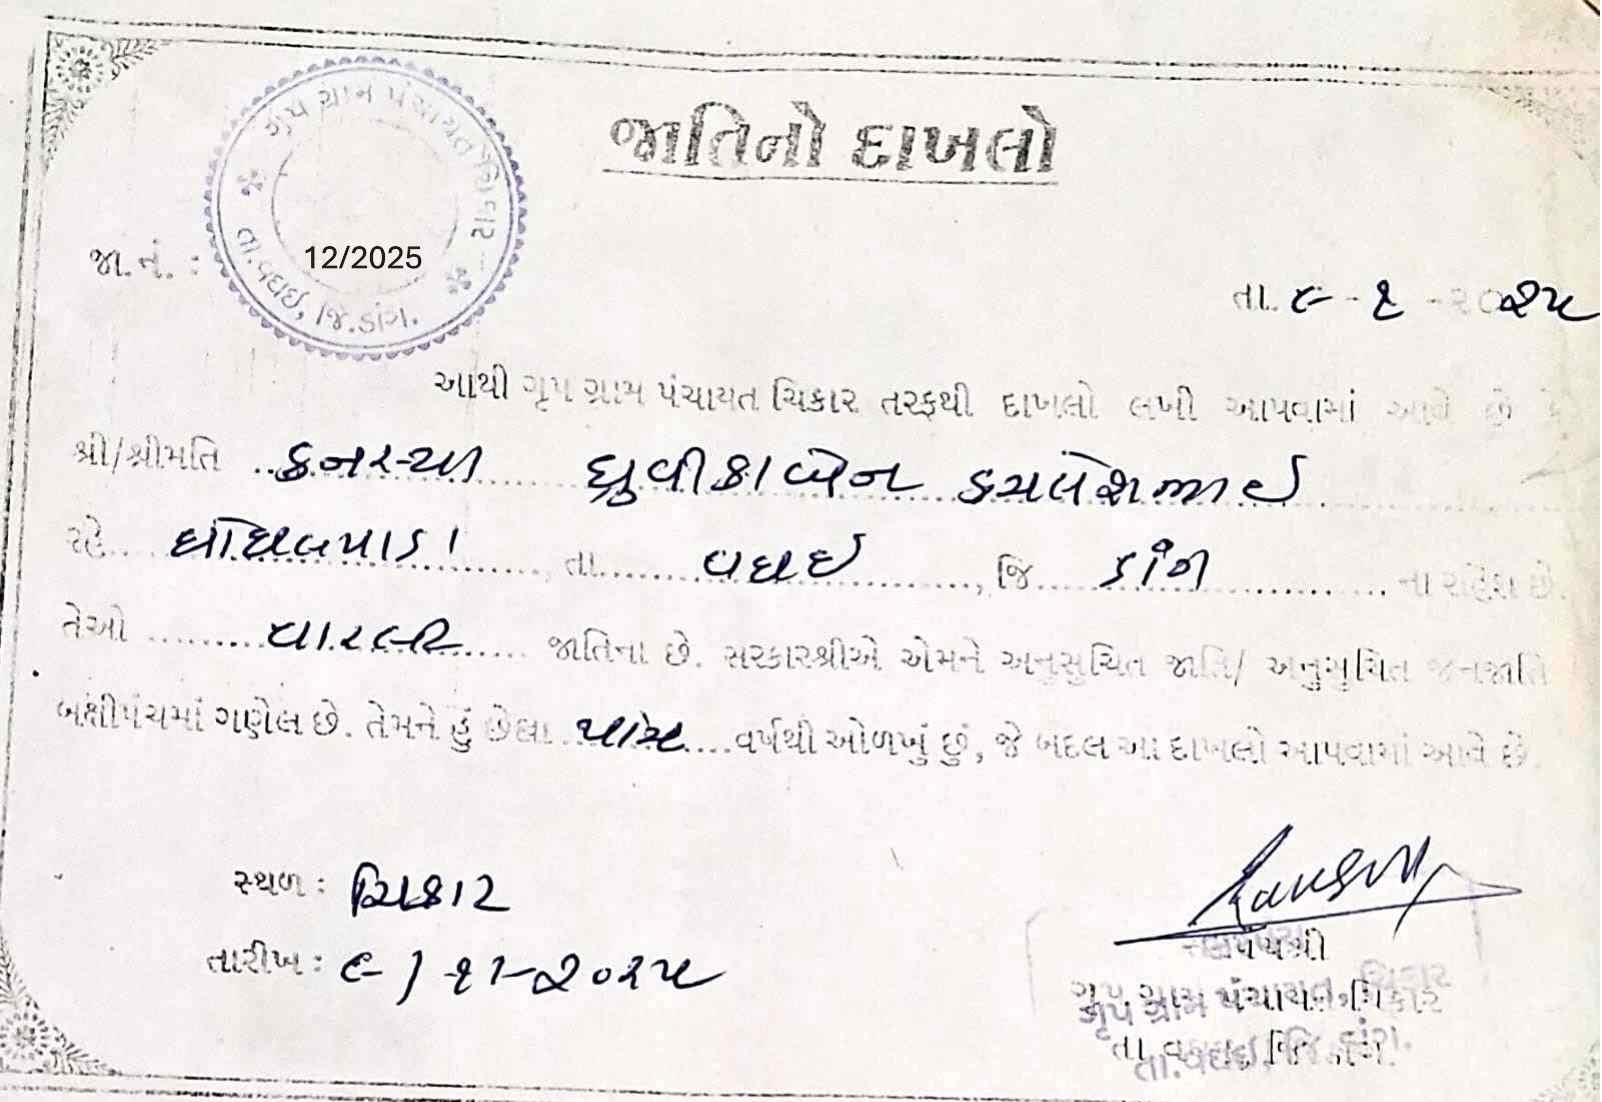 જાતિનો દાખલો
ગૃપ ગ્રામ પંચાયત ચિકાર
તા.વઘઇ, જિ.ડાંગ.
જા.નં. : 12/2025
તા. ૯ - ૧ - ૨૦૨૫
આથી ગૃપ ગ્રામ પંચાયત ચિકાર તરફથી દાખલો લખી આપવામાં આવે છે કે
શ્રી/શ્રીમતિ ધ્રુવીકાબેન કમલેશભાઈ
રહે. તા. વઘઈ, જિ. ડાંગ ના રહિશ છે.
તેઓ વારલી જાતિના છે. સરકારશ્રીએ એમને અનુસુચિત જાતિ/ અનુસુચિત જનજાતિ
બક્ષીપંચમાં ગણેલ છે. તેમને હું છેલા પાંચ વર્ષથી ઓળખું છું, જે બદલ આ દાખલો આપવામાં આવે છે.
સ્થળ : ચિકાર
તારીખ : ૯ / ૧ - ૨૦૨૫
સરપંચશ્રી
ગૃપ ગ્રામ પંચાયત, ચિકાર
તા.વઘઇ, જિ.ડાંગ.